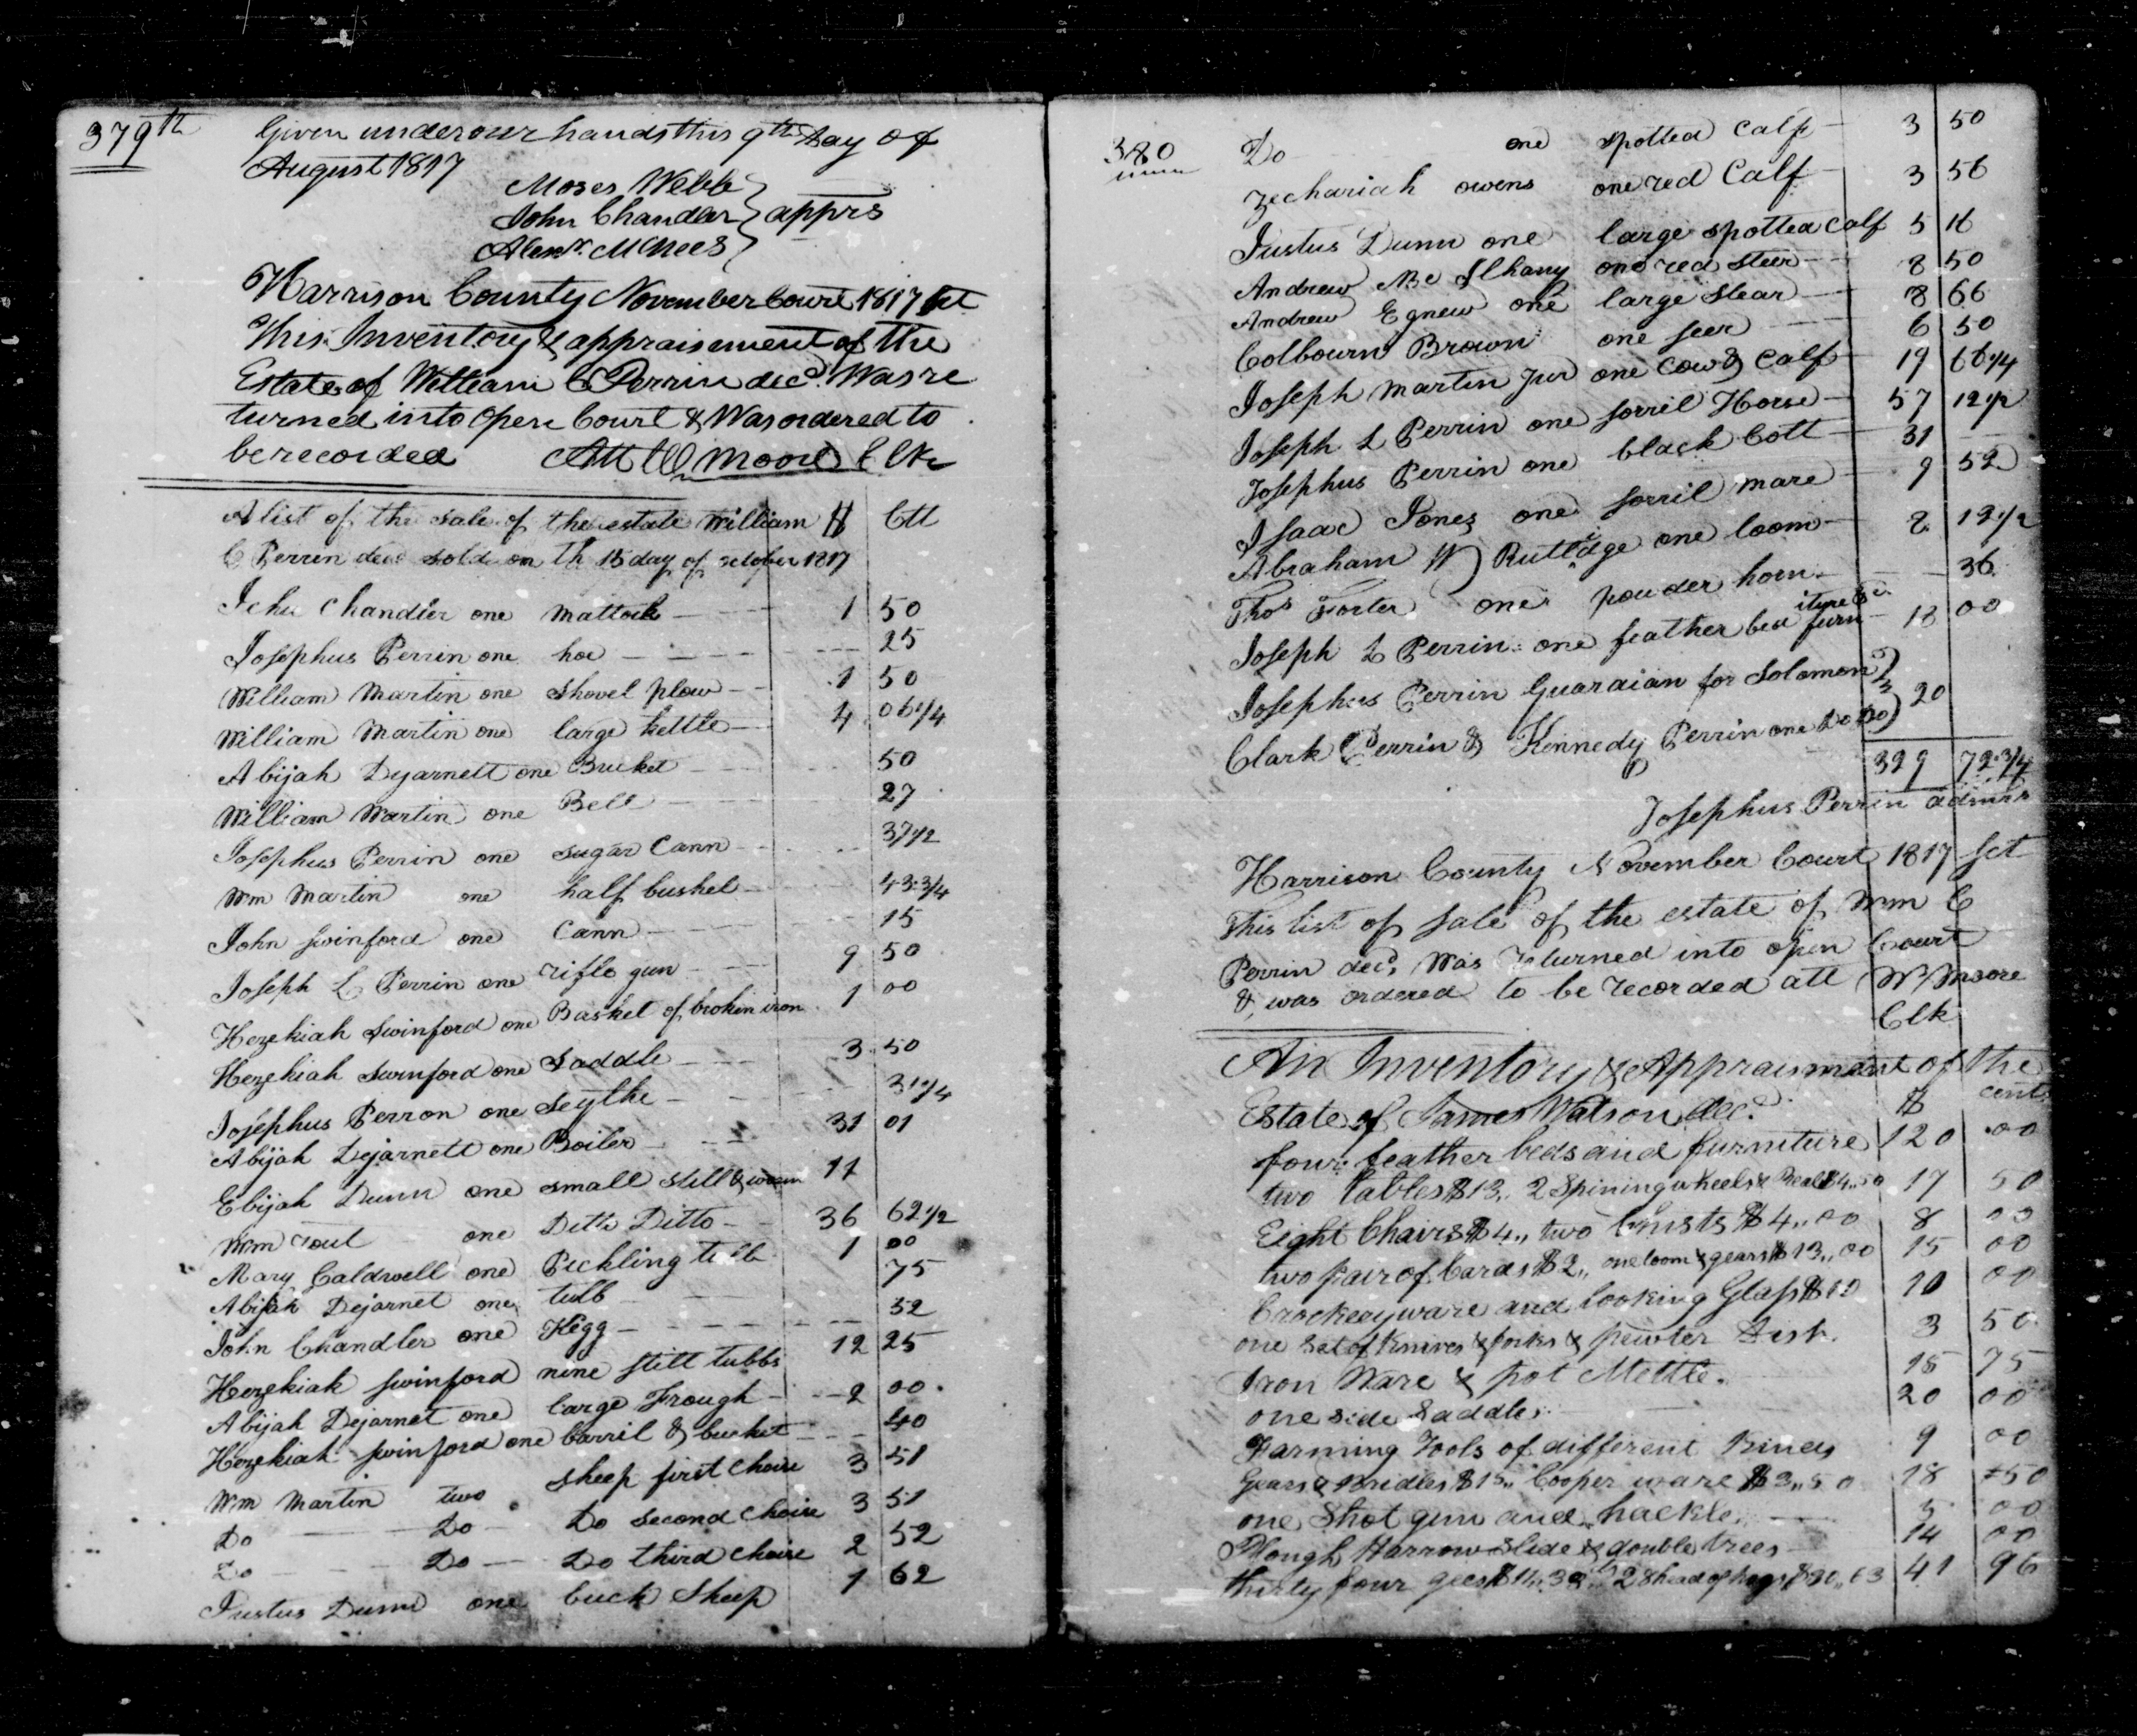 379th
Given under our hands this 9th Day of
August 1817
Moses Webb
John Chandler } apprs
Alexr. McNees
Harrison County November Court 1817 Sct
This Inventory & appraisement of the
Estate of William C Perrin decd. Was re
turned into Open Court & Was ordered to
be recorded Att W Moore Clk
A list of the sale of the estate William $ Ctt
C Perrin decd sold on th 15 day of october 1817
John Chandler one Mattock 1 50
Josephus Perrin one hoe 25
William Martin one shovel plow 1 50
William Martin one large kettle 4 06 1/4
Abijah Dejarnett one Bucket 50
William Martin one Bell 27
Josephus Perrin one sugar Cann 37 1/2
Wm Martin one half bushel 43 3/4
John Swinford one Cann 15
Joseph L Perrin one rifle gun 9 50
Hezekiah Swinford one Basket of broken iron 1 00
Hezekiah Swinford one Saddle 3 50
Josephus Perron one Scythe 31 1/4
Abijah Dejarnett one Boiler 31 01
Ebijah Dunn one small still & worm 11
Wm one Ditto Ditto 36 62 1/2
Mary Caldwell one Pickling tubb 1 00
Abijah Dejarnet one tubb 75
John Chandler one Kegg 52
Hezekiah Swinford nine still tubbs 12 25
Abijah Dejarnet one large Trough 2 00
Hezekiah Swinford one barril & bucket 40
Wm Martin two sheep first choise 3 51
Do Do Do second choise 3 51
Do Do Do third choise 2 52
Justus Dunn one buck Sheep 1 62
380 Do one spotted Calf 3 50
Zechariah owens one red Calf 3 56
Justus Dunn one large spotted calf 5 16
Andrew one red steer 8 50
Andrew Egnew one large stear 8 66
Colbourn Brown one steer 6 50
Joseph Martin Jur one Cow & Calf 19 66 1/4
Joseph L Perrin one sorril Horse 57 12 1/2
Josephus Perrin one black Colt 31
Isaac Jones one sorril mare 9 52
Abraham W Rutlidge one loom 8 12 1/2
Thos Foster one powder horn 36
Joseph L Perrin one feather bed furniture &c. 18 00
Josephus Perrin Guardian for Solomon
Clark Perrin & Kennedy Perrin one Do Do } 20
329 72 3/4
Josephus Perrin admrs
Harrison County November Court 1817 Sct
This list of sale of the estate of Wm C
Perrin decd. Was returned into open Court
& was ordered to be recorded att W Moore
Clk
An Inventory & Appraisment of the
Estate of James Watson decd. $ cents
four feather beds and furniture 120 00
two Tables $13,, 2 Spining wheels & Reel $4,,50 17 50
Eight Chairs $4,, two Chists $4,,00 8 00
two pair of Cards $2,, one loom & gears $13,,00 15 00
Crockery ware and looking Glass $10 10 00
one Set of Knives & forks & pewter Dish. 3 50
Iron Ware & pot Mettle. 15 75
one side Saddle 20 00
Farming Tools of different Kinds 9 00
Gears & Bridles $15,, Cooper ware $3,,50 18 50
one Shot gun and hackle. 5 00
Plough Harrow Slide & double trees 14 00
thirty four gees $11..33 28 head of hogs $30,,63 41 96